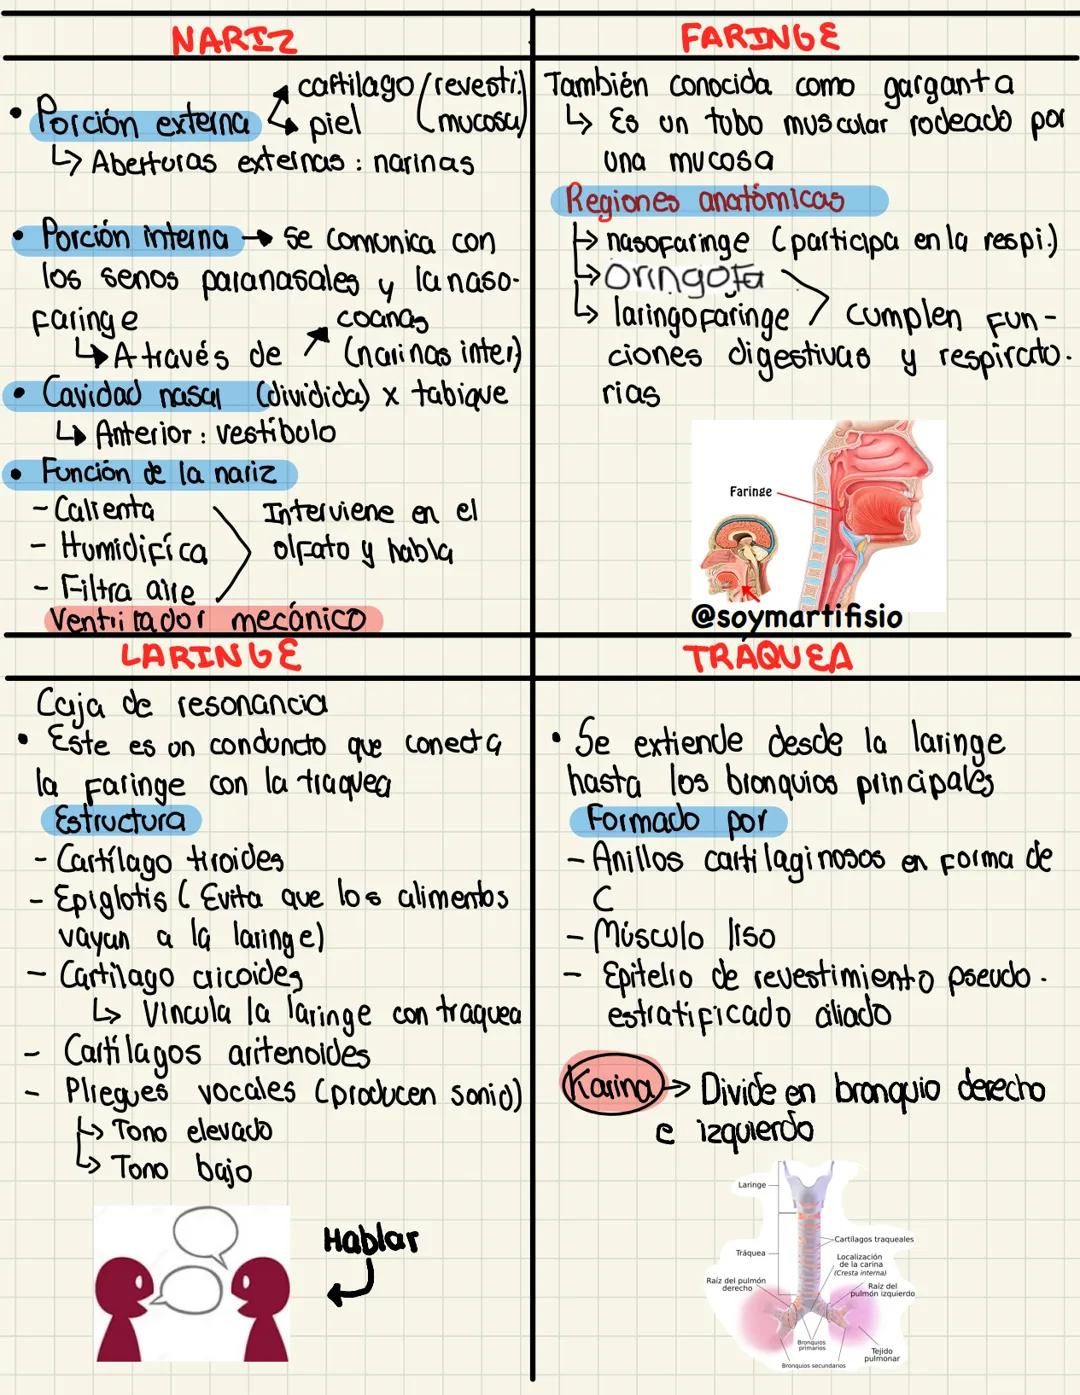 NARIZ
• Porción externa
cartilago (revesti.
piel mucosa)
↳ Aberturas externas : narinas
• Porción interna → se comunica con
los senos paranasales y la naso-
faringe
↳ A través de ↗ coanas
(narinas inter)
• Cavidad nasal (dividida) x tabique
↳ Anterior : vestíbulo
• Función de la nariz
- Calienta
- Humidifica
- Filtra aire
Interviene en el
olfato y habla
Ventilador mecánico
FARINGE
También conocida como garganta
↳ Es un tubo muscular rodeado por
una mucosa
Regiones anatómicas
↳ nasofaringe (participa en la respi.)
↳ laringofaringe
cumplen fun-
ciones digestivas y respirato-
rias
Faringe
@soymartifisio
LARINGE
Caja de resonancia
• Este es un conduncto que conecta
la faringe con la traquea
Estructura
- Cartílago tiroides
- Epiglotis ( Evita que los alimentos
vayan a la laringe)
- Cartilago cricoides
↳ Vincula la laringe con traquea
- Cartilagos aritenoides
- Pliegues vocales (producen sonid)
↳ Tono elevado
↳ Tono bajo
Hablar
TRÁQUEA
• Se extiende desde la laringe
hasta los bronquios principales
Formado por
- Anillos cartilaginosos en forma de
C
- Músculo liso
- Epitelio de revestimiento pseudo-
estratificado ciliado
Karina → Divide en bronquio derecho
e izquierdo
Laringe
Cartílagos traqueales
Tráquea
Localización
de la carina
(Cresta interna)
Raíz del pulmón
derecho
Raíz del
pulmón izquierdo
Bronquios
primarios
Tejido
pulmonar
Bronquios secundarios